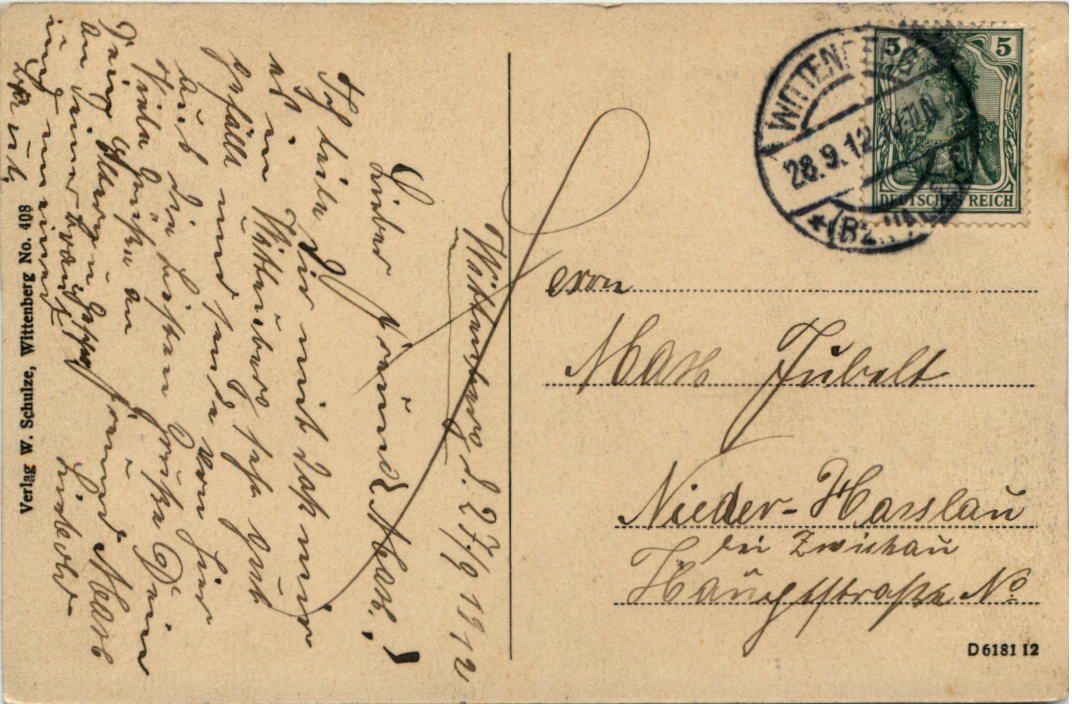 Wittenberg d. 27/9 1912
Lieber Freund Max!
Ich teile Dir mit daß mir
es in Wittenberg sehr gut
gefällt und sende von hier
aus die besten Grüße Dein
Freund Max
Viele Grüße an
Deine Eltern u.
an Deiner Braut
und unbekannt
Verlag W. Schulze, Wittenberg No. 408
5 5
DEUTSCHES REICH
WITTENBERG
28.9.12
(Bz. HALLE)
Herrn
Max Jubelt
Nieder-Hasslau
bei Zwickau
Hauptstraße No
D 6181 12